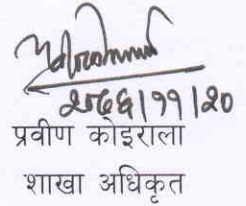 २०६६|११|२०
प्रवीण कोइराला
शाखा अधिकृत